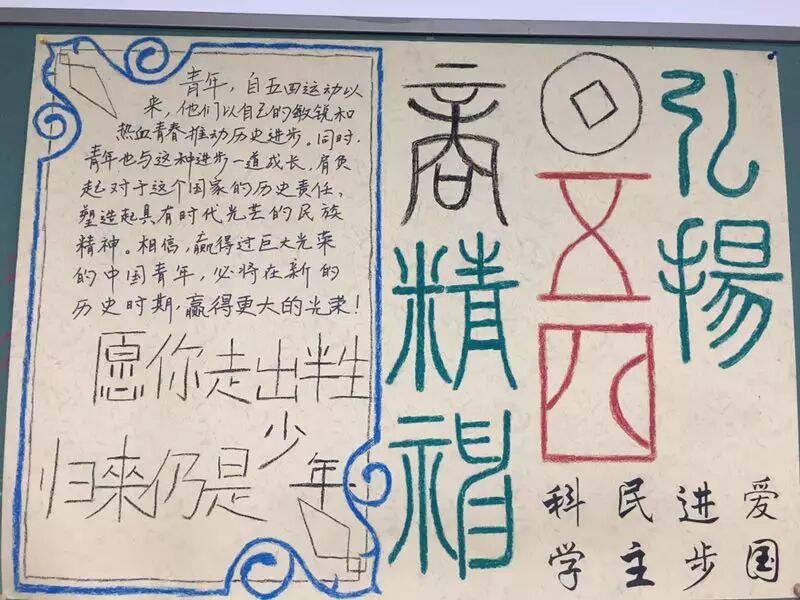 弘揚
五四
商精神
爱国
进步
民主
科学
青年，自五四运动以
来，他们以自己的敏锐和
热血青春推动历史进步。同时，
青年也与这种进步一道成长，肩负
起对于这个国家的历史责任，
塑造起具有时代光芒的民族
精神。相信，赢得过巨大光荣
的中国青年，必将在新的
历史时期，赢得更大的光荣！
愿你走出半生
归來仍是少年